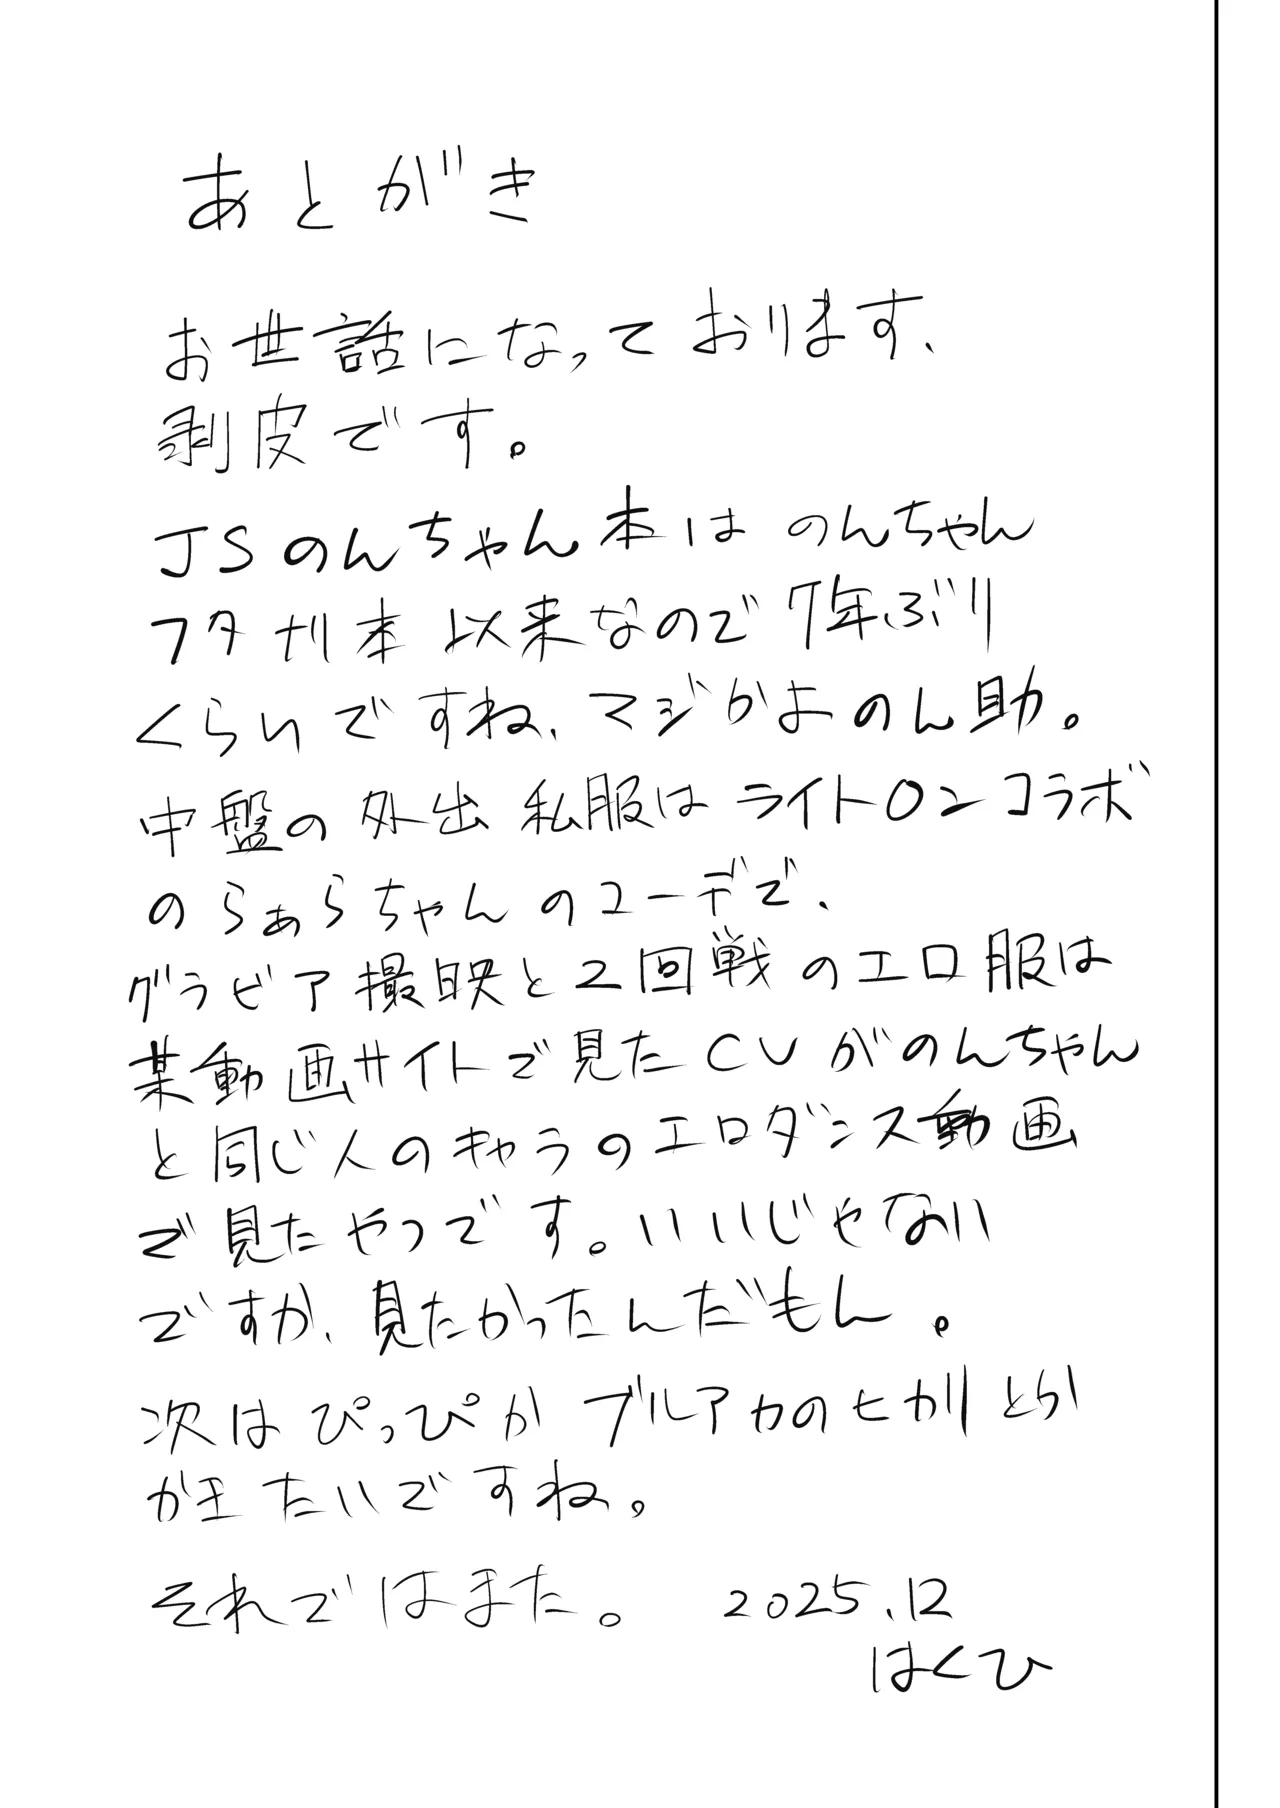 あとがき
お世話になっております、
剥皮です。
JSのんちゃん本はのんちゃん
フタナリ本以来なので7年ぶり
くらいですね、マジかよのん助。
中盤の外出私服はライト○ンコラボ
のらぁらちゃんのコーデで、
グラビア撮映と2回戦のエロ服は
某動画サイトで見たCVがのんちゃん
と同じ人のキャラのエロダンス動画
で見たやつです。いいじゃない
ですか、見たかったんだもん。
次はぴっぴかブルアカのヒカリとか
がきたいですね。
それではまた。 2025.12
はくひ